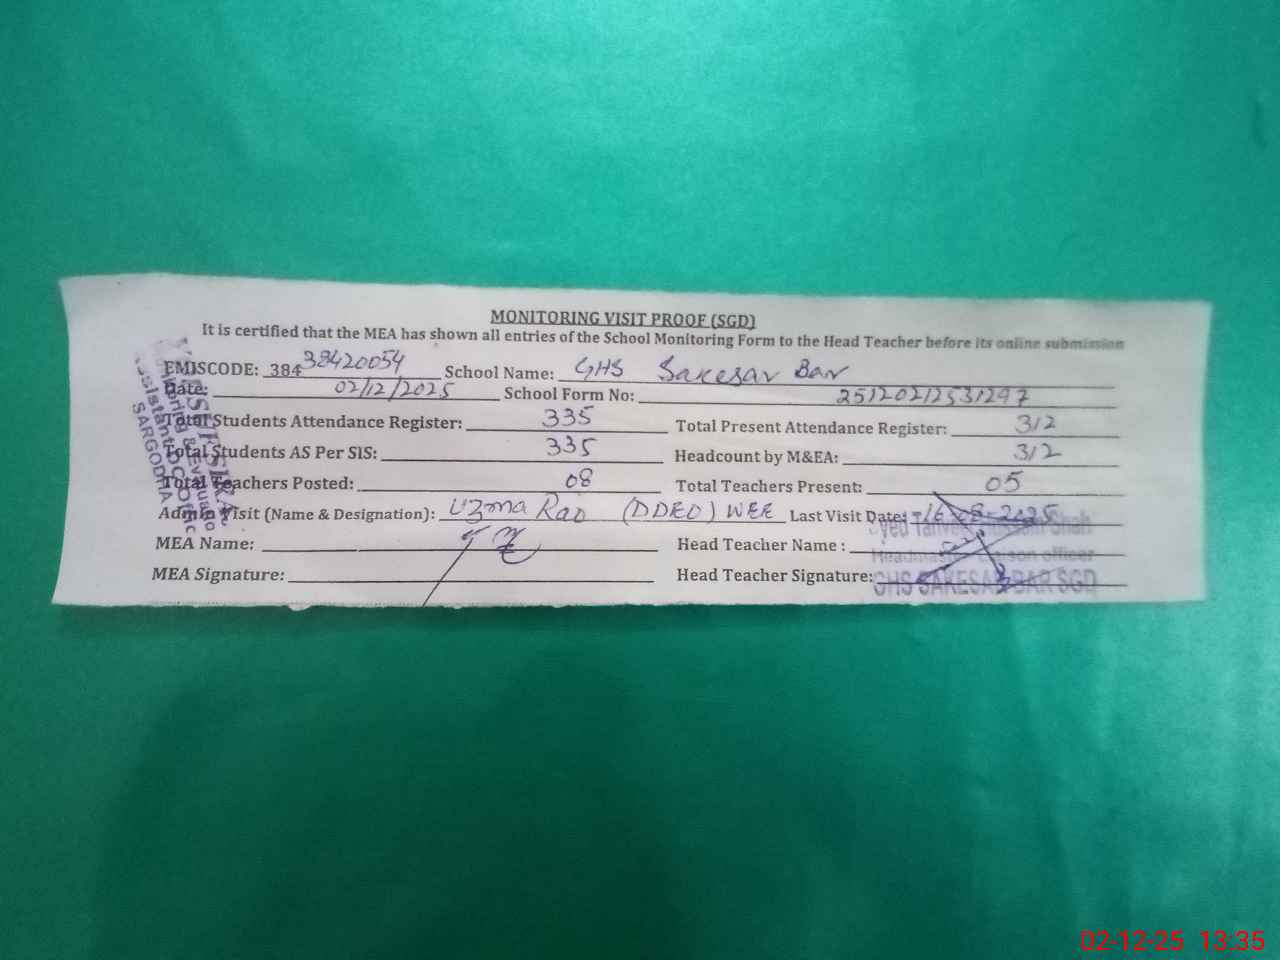 MONITORING VISIT PROOF (SGD)
It is certified that the MEA has shown all entries of the School Monitoring Form to the Head Teacher before its online submission
EMISCODE: 384 38420054 School Name: GHS Sakesar Bar
Date: 02/12/2025 School Form No:
Total Students Attendance Register: 335 Total Present Attendance Register: 312
Total Students AS Per SIS: 335 Headcount by M&EA: 312
Total Teachers Posted: 08 Total Teachers Present: 05
Admin Visit (Name & Designation): Uzma Rao (DDEO) WEE Last Visit Date:
MEA Name: Head Teacher Name :
MEA Signature: Head Teacher Signature:
GHS SAKESAR BAR SGD
SARGODHA
02-12-25 13:35